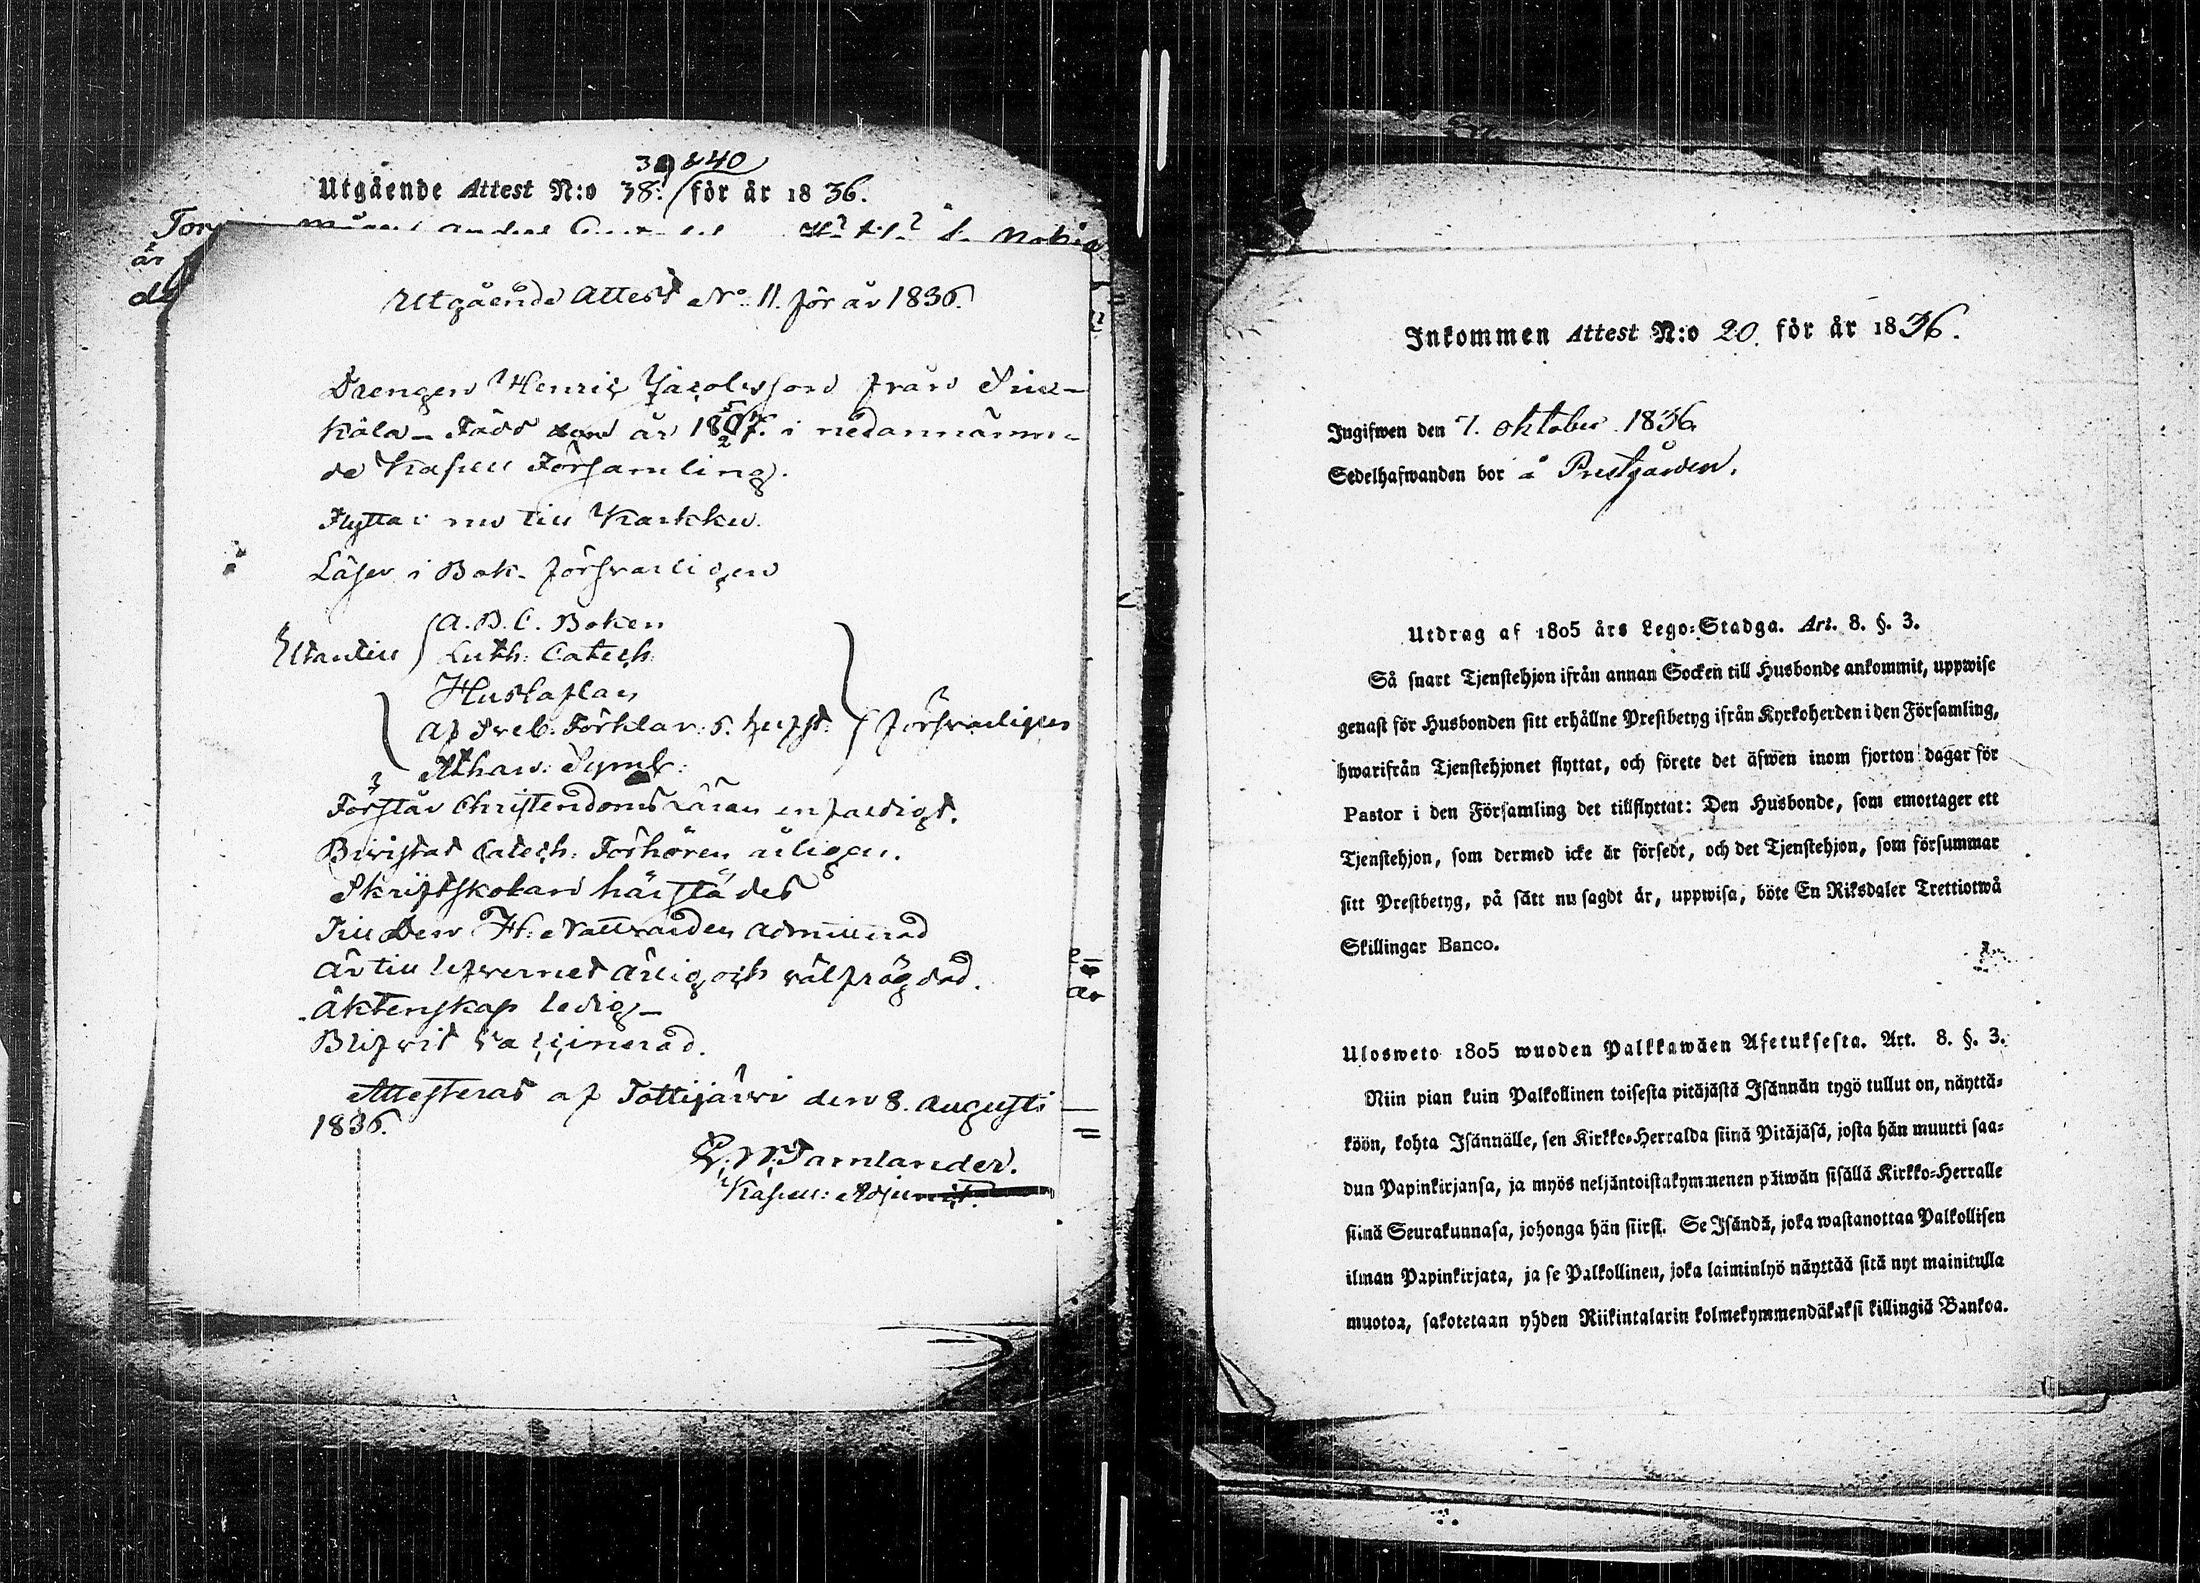 39 & 40
Utgående Attest N:o 38. för år 1836.
Utgående Attest No. 11. för år 1836.
Drengen Henric Jacobsson från Sin-
kala - Född år 180 i nedannämn-
de Kapell Församling.
Flyttar nu till Karkku.
Läser i Bok försvarligen
Utantill A.B.C. Boken
Luth: Catech:
Hustaflan
Af Sveb. Förklar: 5. hufst. försvarligen
Athan: Symb:
Förstår Christendoms Läran enfaldigt.
Bivistat Catech: Förhören årligen.
Skriftskolan härstädes
Till Den H: Nattvarden admitterad
Är till lefvernet ärlig och välfrägdad.
Äktenskap ledig -
Blifvit Vaccinerad.
Attesteras af Tottijärvi den 8. Augusti
1836.
Tamlander.
Kapell: Adjunct.
Inkommen Attest N:o 20. för år 1836.
Ingifwen den 7. oktober 1836.
Sedelhafwanden bor å Prestgården.
Utdrag af 1805 års Lego-Stadga. Art. 8. §. 3.
Så snart Tjenstehjon ifrån annan Socken till Husbonde ankommit, uppwise
genast för Husbonden sitt erhållne Prestbetyg ifrån Kyrkoherden i den Församling,
hwarifrån Tjenstehjonet flyttat, och förete det äfwen inom fjorton dagar för
Pastor i den Församling det tillflyttat: Den Husbonde, som emottager ett
Tjenstehjon, som dermed icke är försedt, och det Tjenstehjon, som försummar
sitt Prestbetyg, på sätt nu sagdt är, uppwisa, böte En Riksdaler Trettiotwå
Skillingar Banco.
Ulosweto 1805 wuoden Palkkawäen Asetuksesta. Art. 8. §. 3.
Niin pian kuin Palkollinen toisesta pitäjästä Isännän tygö tullut on, näyttä-
köön, kohta Isännälle, sen Kirkko-Herralda siinä Pitäjäsä, josta hän muutti saa-
dun Papinkirjansa, ja myös neljäntoistakymmenen päiwän sisällä Kirkko-Herralle
siinä Seurakunnasa, johonga hän siirsi. Se Isändä, joka wastanottaa Palkollisen
ilman Papinkirjata, ja se Palkollinen, joka laiminlyö näyttää sitä nyt mainitulla
muotoa, sakotetaan yhden Riikintalarin kolmekymmendäkaksi killingiä Bankoa.